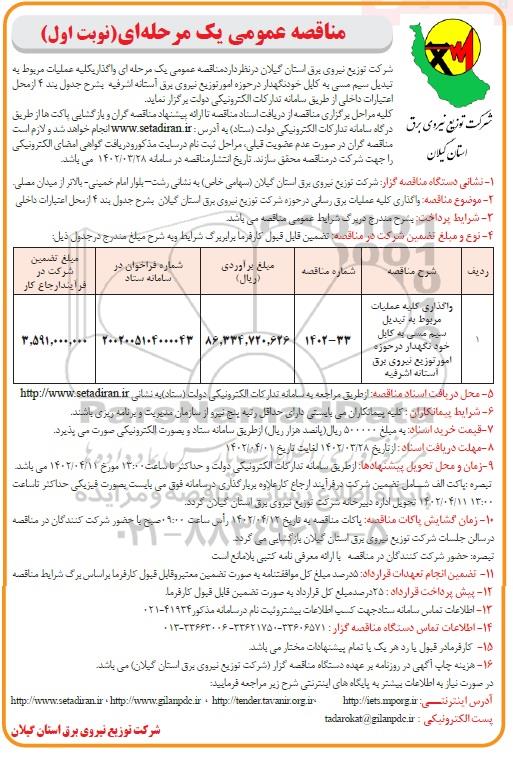 مناقصه عمومی یک مرحله‌ای(نوبت اول)
شرکت توزیع نیروی برق
استان گیلان
شرکت توزیع نیروی برق استان گیلان درنظرداردمناقصه عمومی یک مرحله ای واگذاریکلیه عملیات مربوط به
تبدیل سیم مسی به کابل خودنگهدار درحوزه امورتوزیع نیروی برق آستانه اشرفیه بشرح جدول بند ۴ ازمحل
اعتبارات داخلی از طریق سامانه تدارکات الکترونیکی دولت برگزار نماید.
کلیه مراحل برگزاری مناقصه از دریافت اسناد مناقصه تا ارائه پیشنهاد مناقصه گران و بازگشایی پاکت ها از طریق
درگاه سامانه تدارکات الکترونیکی دولت (ستاد) به آدرس : www.setadiran.ir انجام خواهد شد و لازم است
مناقصه گران در صورت عدم عضویت قبلی، مراحل ثبت نام درسایت مذکورودریافت گواهی امضای الکترونیکی
را جهت شرکت درمناقصه محقق سازند. تاریخ انتشارمناقصه در سامانه ۱۴۰۲/۰۳/۲۸ می باشد.
۱- نشانی دستگاه مناقصه گزار: شرکت توزیع نیروی برق استان گیلان (سهامی خاص) به نشانی رشت–بلوار امام خمینی- بالاتر از میدان مصلی.
۲- موضوع مناقصه: واگذاری کلیه عملیات برق رسانی درحوزه شرکت توزیع نیروی برق استان گیلان بشرح جدول بند ۴ ازمحل اعتبارات داخلی
۳- شرایط پرداخت: بشرح مندرج دربرگ شرایط عمومی مناقصه می باشد.
۴- نوع و مبلغ تضمین شرکت در مناقصه: تضمین قابل قبول کارفرما برابربرگ شرایط وبه شرح مبلغ مندرج درجدول ذیل:
ردیف | شرح مناقصه | شماره مناقصه | مبلغ برآوردی (ریال) | شماره فراخوان در سامانه ستاد | مبلغ تضمین شرکت در فرآیندارجاع کار
۱ | واگذاری کلیه عملیات مربوط به تبدیل سیم مسی به کابل خود نگهدار درحوزه امورتوزیع نیروی برق آستانه اشرفیه | ۱۴۰۲-۳۳ | ۸۶,۳۳۴,۷۲۰,۶۲۶ | ۲۰۰۲۰۰۵۱۰۴۰۰۰۰۴۳ | ۳,۵۹۱,۰۰۰,۰۰۰
۵- محل دریافت اسناد مناقصه: ازطریق مراجعه به سامانه تدارکات الکترونیکی دولت (ستاد)به نشانی http://www.setadiran.ir
۶- شرایط پیمانکاران : کلیه پیمانکاران می بایستی دارای حداقل رتبه پنج نیرو از سازمان مدیریت و برنامه ریزی باشند.
۷-قیمت خرید اسناد: به مبلغ ۵۰۰۰۰۰ ریال(پانصد هزار ریال) ازطریق سامانه ستاد و بصورت الکترونیکی صورت می پذیرد.
۸-مهلت دریافت اسناد : از تاریخ ۱۴۰۲/۰۳/۲۸ لغایت تاریخ ۱۴۰۲/۰۴/۰۱
۹-زمان و محل تحویل پیشنهادها: ازطریق سامانه تدارکات الکترونیکی دولت و حداکثر تا ساعت۱۳:۰۰ مورخ ۱۴۰۲/۰۴/۱۱ می باشد.
تبصره :پاکت الف شامل تضمین شرکت درفرآیند ارجاع کارعلاوه بربارگذاری درسامانه فوق می بایست بصورت فیزیکی حداکثر تاساعت
۱۳:۰۰ ۱۴۰۲/۰۴/۱۱ تحویل اداره دبیرخانه شرکت توزیع نیروی برق استان گیلان گردد.
۱۰- زمان گشایش پاکات مناقصه: پاکات مناقصه به تاریخ ۱۴۰۲/۰۴/۱۲ رأس ساعت ۰۹:۰۰صبح با حضور شرکت کنندگان در مناقصه
درسالن جلسات شرکت توزیع نیروی برق استان گیلان بازگشایی می گردد.
تبصره: حضور شرکت کنندگان در مناقصه با ارائه معرفی نامه کتبی بلامانع است
۱۱- تضمین انجام تعهدات قرارداد: ۵درصد مبلغ کل موافقتنامه به صورت تضمین معتبروقابل قبول کارفرما براساس برگ شرایط مناقصه
۱۲- پیش پرداخت قرارداد : ۲۵درصدمبلغ کل قرارداد به صورت تضمین قابل قبول کارفرما.
۱۳- اطلاعات تماس سامانه ستادجهت کسب اطلاعات بیشتروثبت نام درسامانه مذکور۴۱۹۳۴-۰۲۱
۱۴- اطلاعات تماس دستگاه مناقصه گزار : ۳۳۶۰۶۵۷۱-۳۳۶۲۱۷۵۰-۳۳۶۶۳۰۰۶-۰۱۳
۱۵- کارفرمادر قبول یا رد هر یک یا تمام پیشنهادات مختار می باشد.
۱۶- هزینه چاپ آگهی در روزنامه بر عهده دستگاه مناقصه گزار (شرکت توزیع نیروی برق استان گیلان) می باشد.
در صورت نیاز به اطلاعات بیشتر به پایگاه های اینترنتی شرح زیر مراجعه فرمایید:
آدرس اینترنتی: http://iets.mporg.ir ، http://tender.tavanir.org.ir ، http://www.gilanpdc.ir ، http://www.setadiran.ir
پست الکترونیکی : tadarokat@gilanpdc.ir
شرکت توزیع نیروی برق استان گیلان